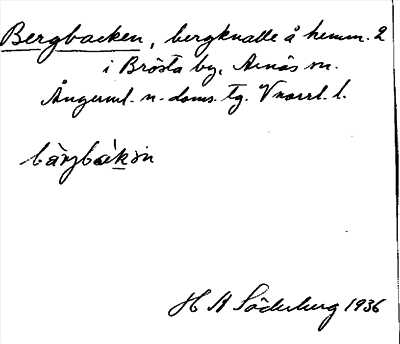 Bergbacken, bergknalle å hemm. 2
i Brösta by, Arnäs sn.
Ångerml. n. doms. tg. Vnorrl. l.
bàrjbákən
H A Söderberg 1936